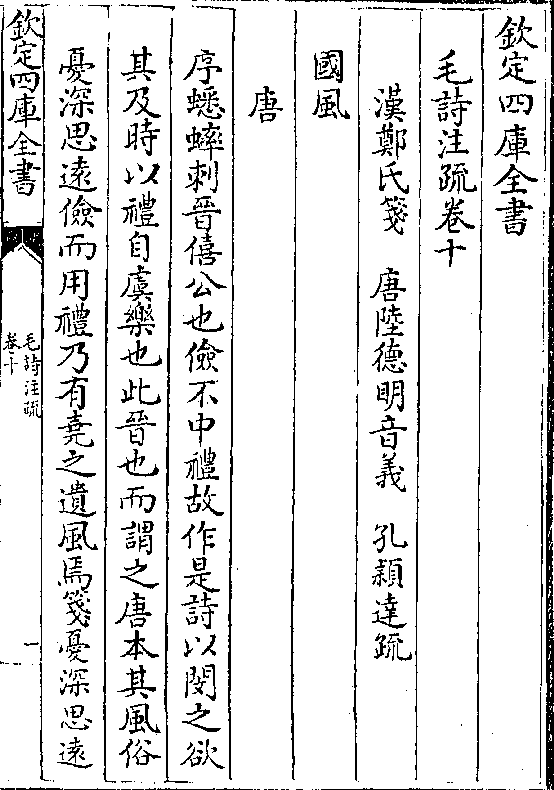 欽定四庫全書
毛詩注疏卷十
漢鄭氏箋　唐陸德明音義　孔穎達疏
國風
唐
序蟋蟀刺晉僖公也儉不中禮故作是詩以閔之欲
其及時以禮自虞樂也此晉也而謂之唐本其風俗
憂深思遠儉而用禮乃有堯之遺風焉箋憂深思遠
欽定四庫全書
毛詩注疏
卷十
一